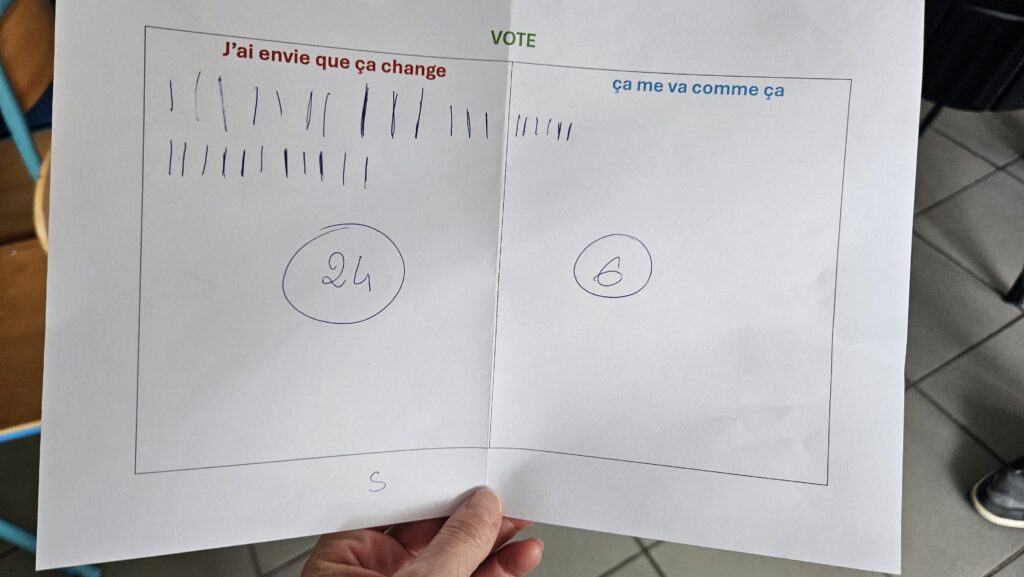 VOTE
J'ai envie que ça change
ça me va comme ça
24
6
S